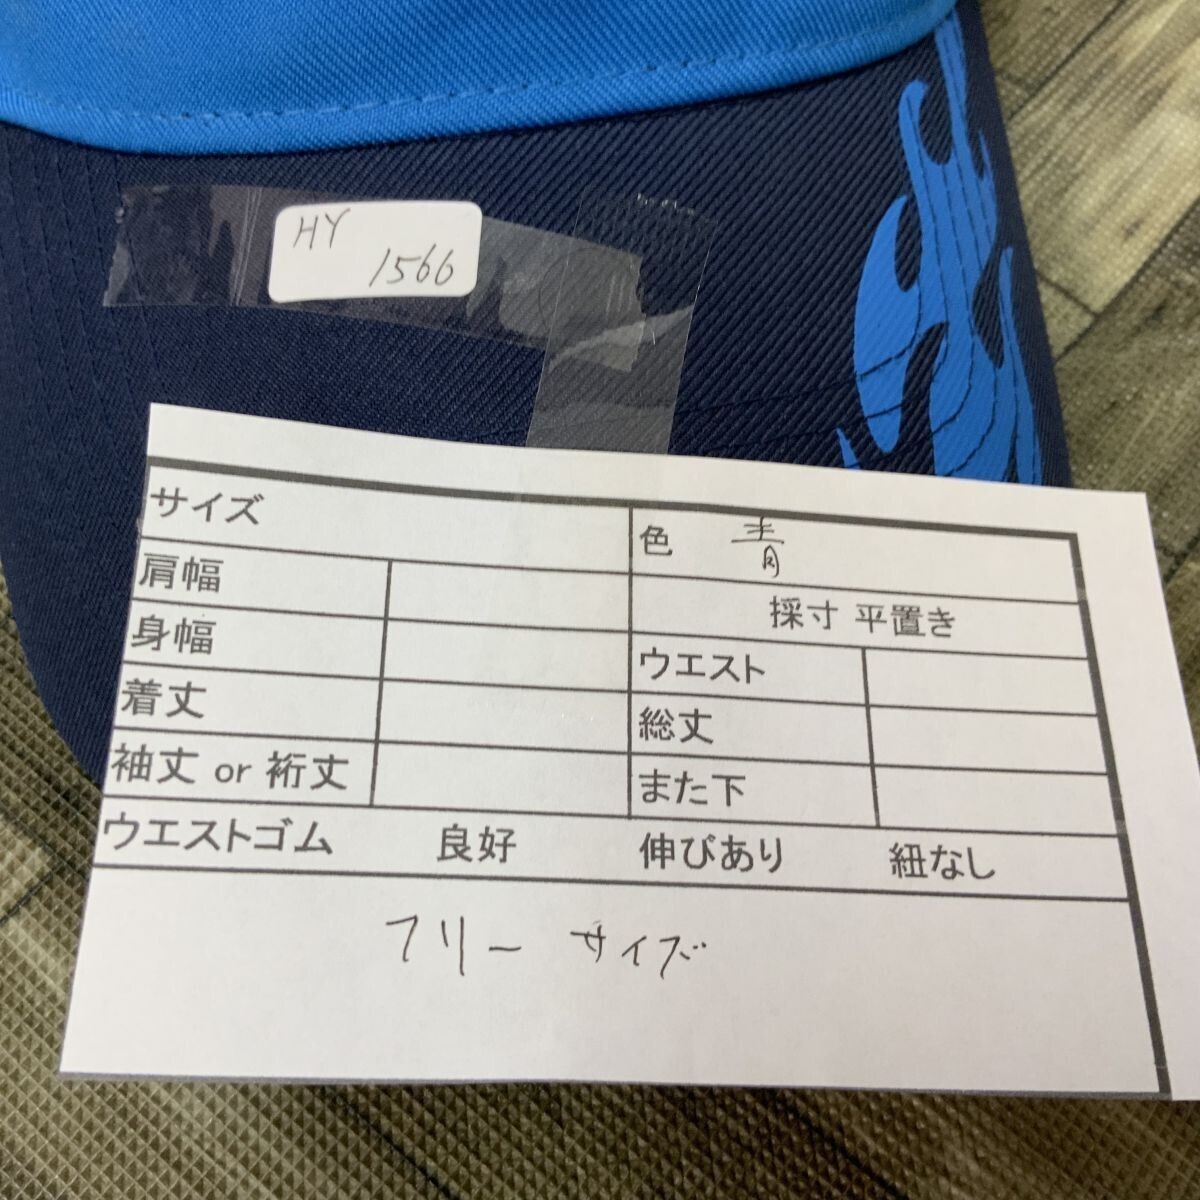 HY
1566
サイズ
色 青
肩幅
採寸 平置き
身幅
ウエスト
着丈
総丈
袖丈 or 裄丈
また下
ウエストゴム 良好 伸びあり 紐なし
フリー サイズ